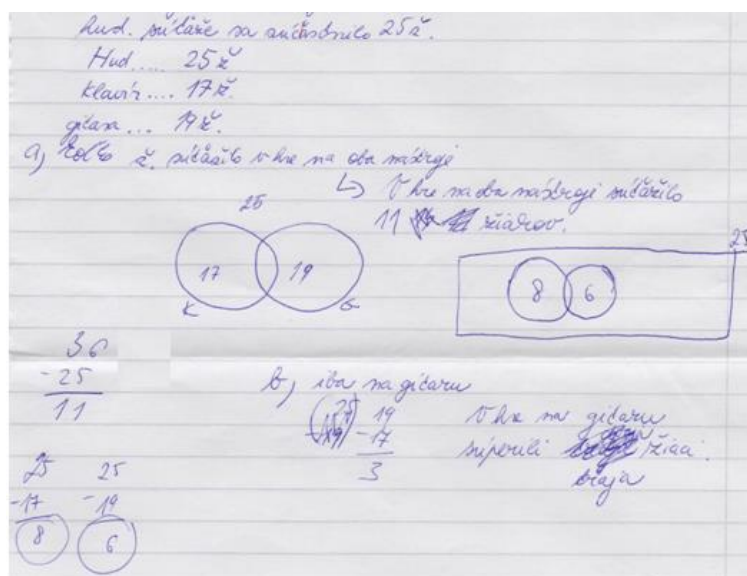 hud. súťaže sa zúčastnilo 25 ž.
Hud.... 25 ž
klavír.... 17 ž.
gitara... 19 ž.
a) koľko ž. súťažilo v hre na oba nástroje
↳ V hre na oba nástroje súťažilo
11 žiakov.
25
17 19
K G
25
8 6
36
- 25
11
b) iba na gitaru
25 19
- 19 - 17
3
V hre na gitaru
súperili žiaci.
traja
25 25
-17 -19
8 6